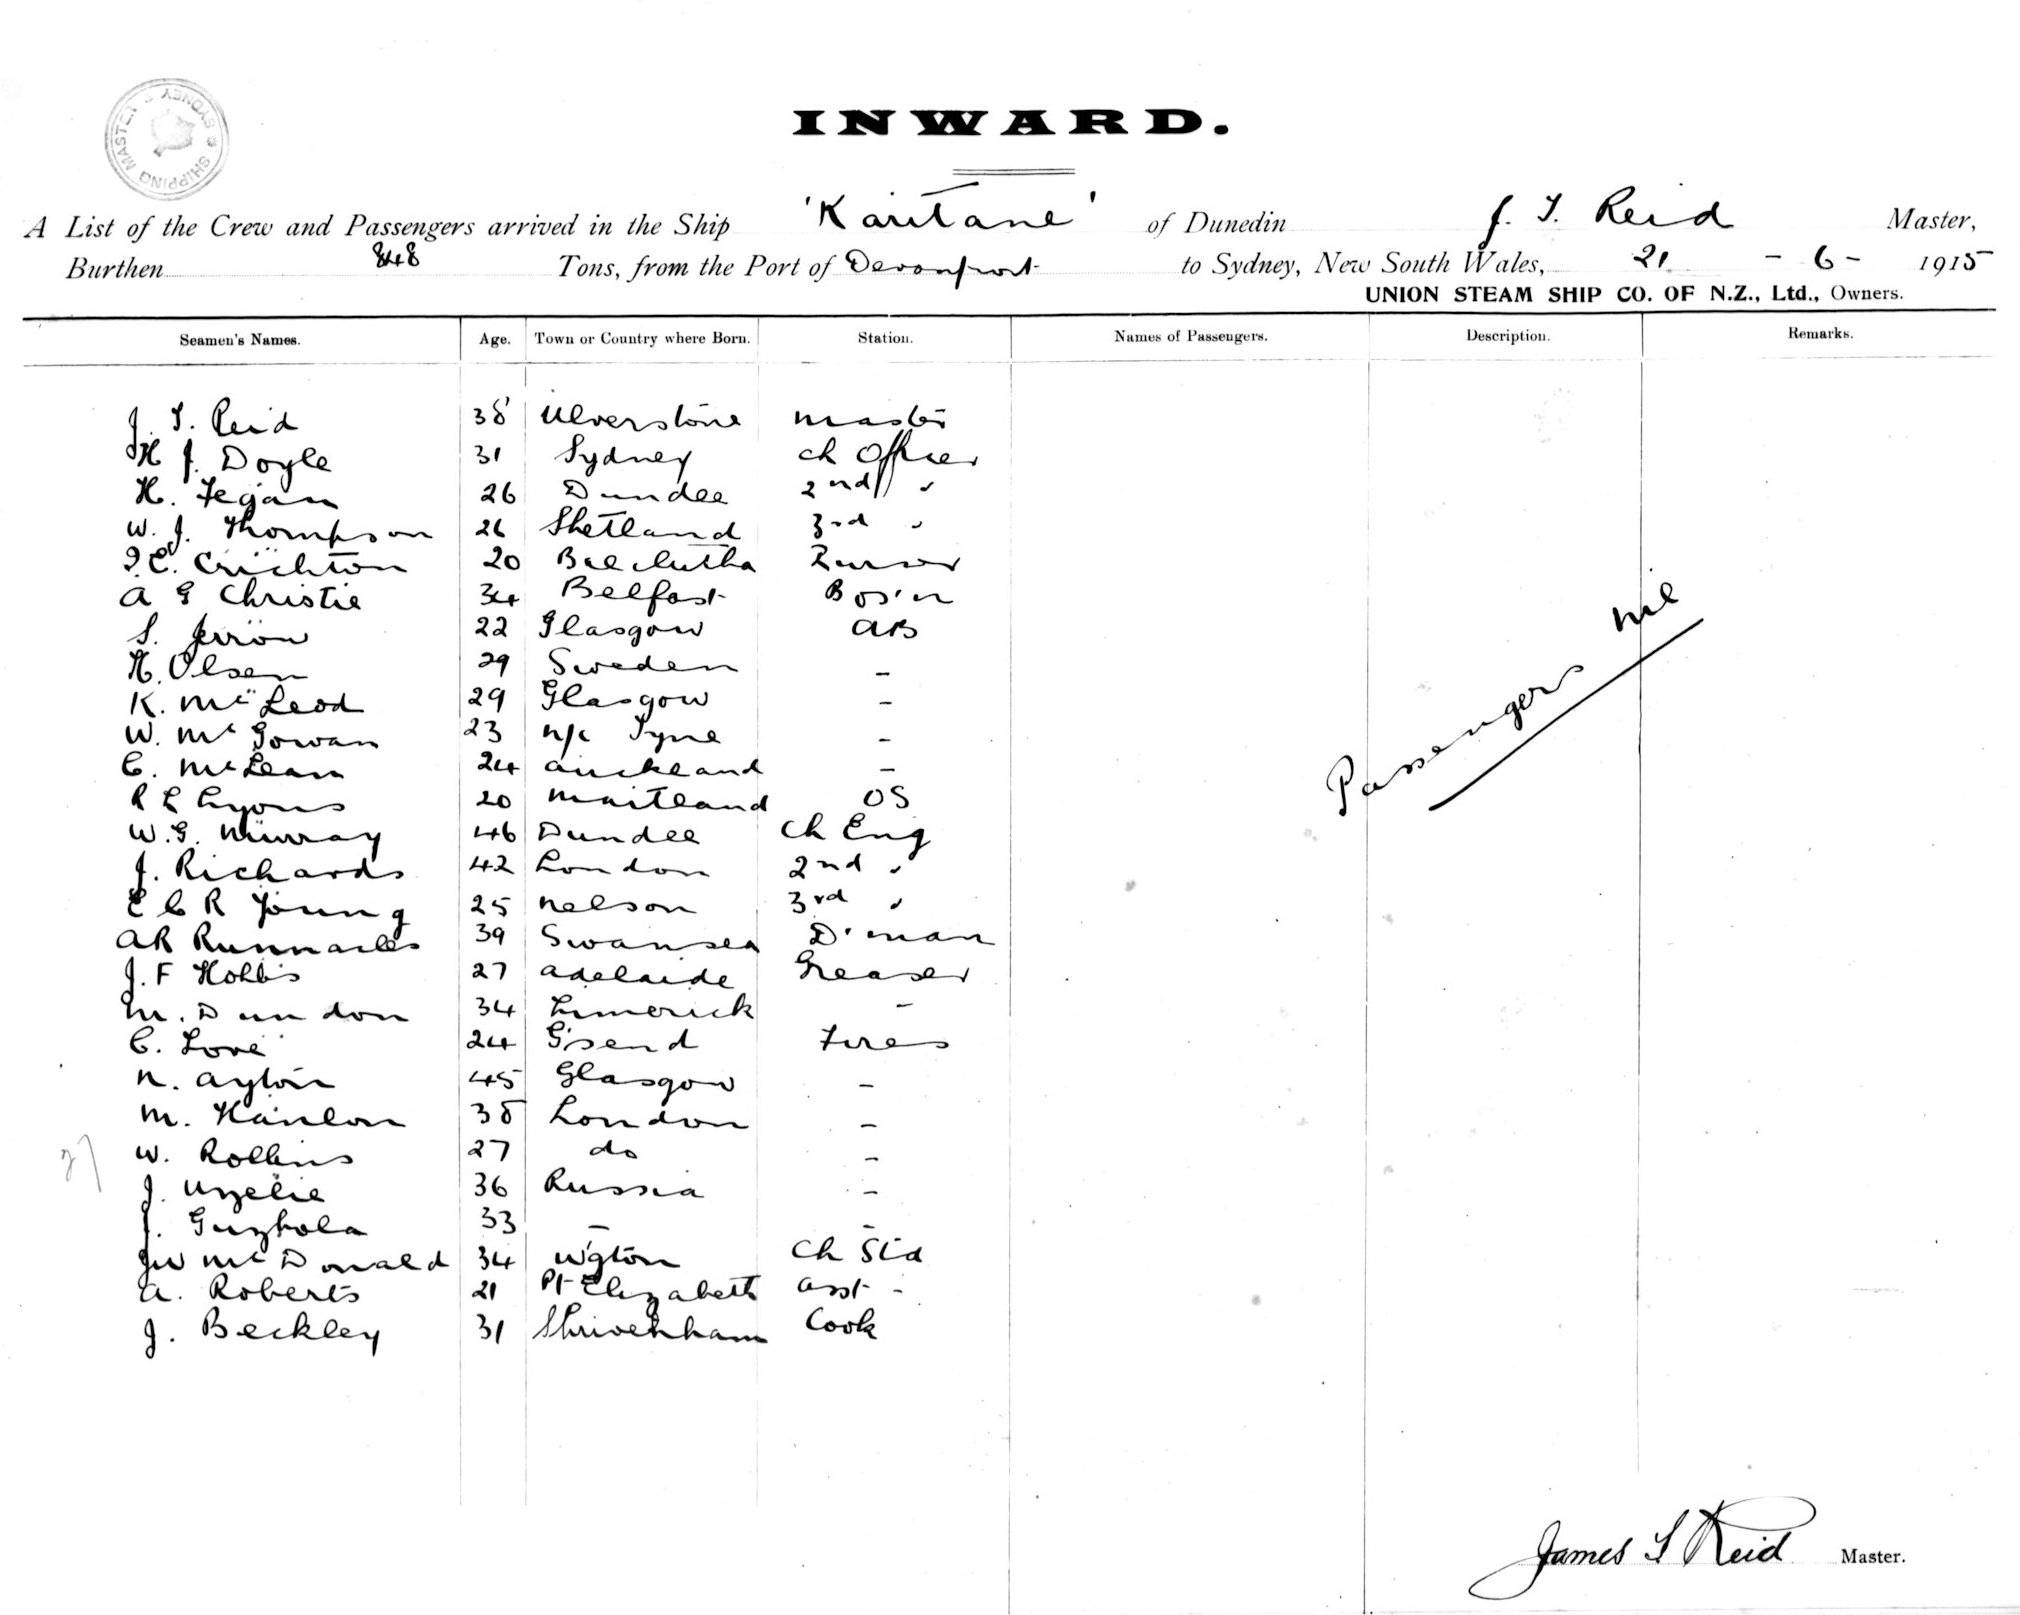 SHIPPING MASTER SYDNEY
INWARD.
A List of the Crew and Passengers arrived in the Ship 'Karitane' of Dunedin J. T. Reid Master,
Burthen 848 Tons, from the Port of Devonport to Sydney, New South Wales, 21 - 6 - 1915
UNION STEAM SHIP CO. OF N.Z., Ltd., Owners.
Seamen's Names. Age. Town or Country where Born. Station. Names of Passengers. Description. Remarks.
J. T. Reid 38 Ulverstone Master
H J. Doyle 31 Sydney Ch Officer
H. Fegan 26 Dundee 2nd "
W. J. Thompson 26 Shetland 3rd "
Crichton 20 Balclutha Purser
A G Christie 34 Belfast Bos'n
S. Jerrow 22 Glasgow AB
H. Olsen 29 Sweden -
K. McLeod 29 Glasgow -
W. McGowan 23 n/c Tyne -
C. McLean 24 Auckland -
R L Lyons 20 Maitland OS
W. G. Murray 46 Dundee Ch Eng
J. Richards 42 London 2nd "
E C R Young 25 Nelson 3rd "
A R Runnacles 39 Swansea D'man
J. F Hobbs 27 Adelaide Greaser
M. Dundon 34 Limerick -
C. Love 24 G'send Fires
N. Ayton 45 Glasgow -
M. Hanlon 38 London -
W. Rollins 27 do -
J. Uzelie 36 Russia -
J. Guzhola 33 - -
JW McDonald 34 W'gton Ch Std
A. Roberts 21 Pt Elizabeth Asst -
J. Beckley 31 Shrivenham Cook
Passengers nil
27
James T Reid Master.